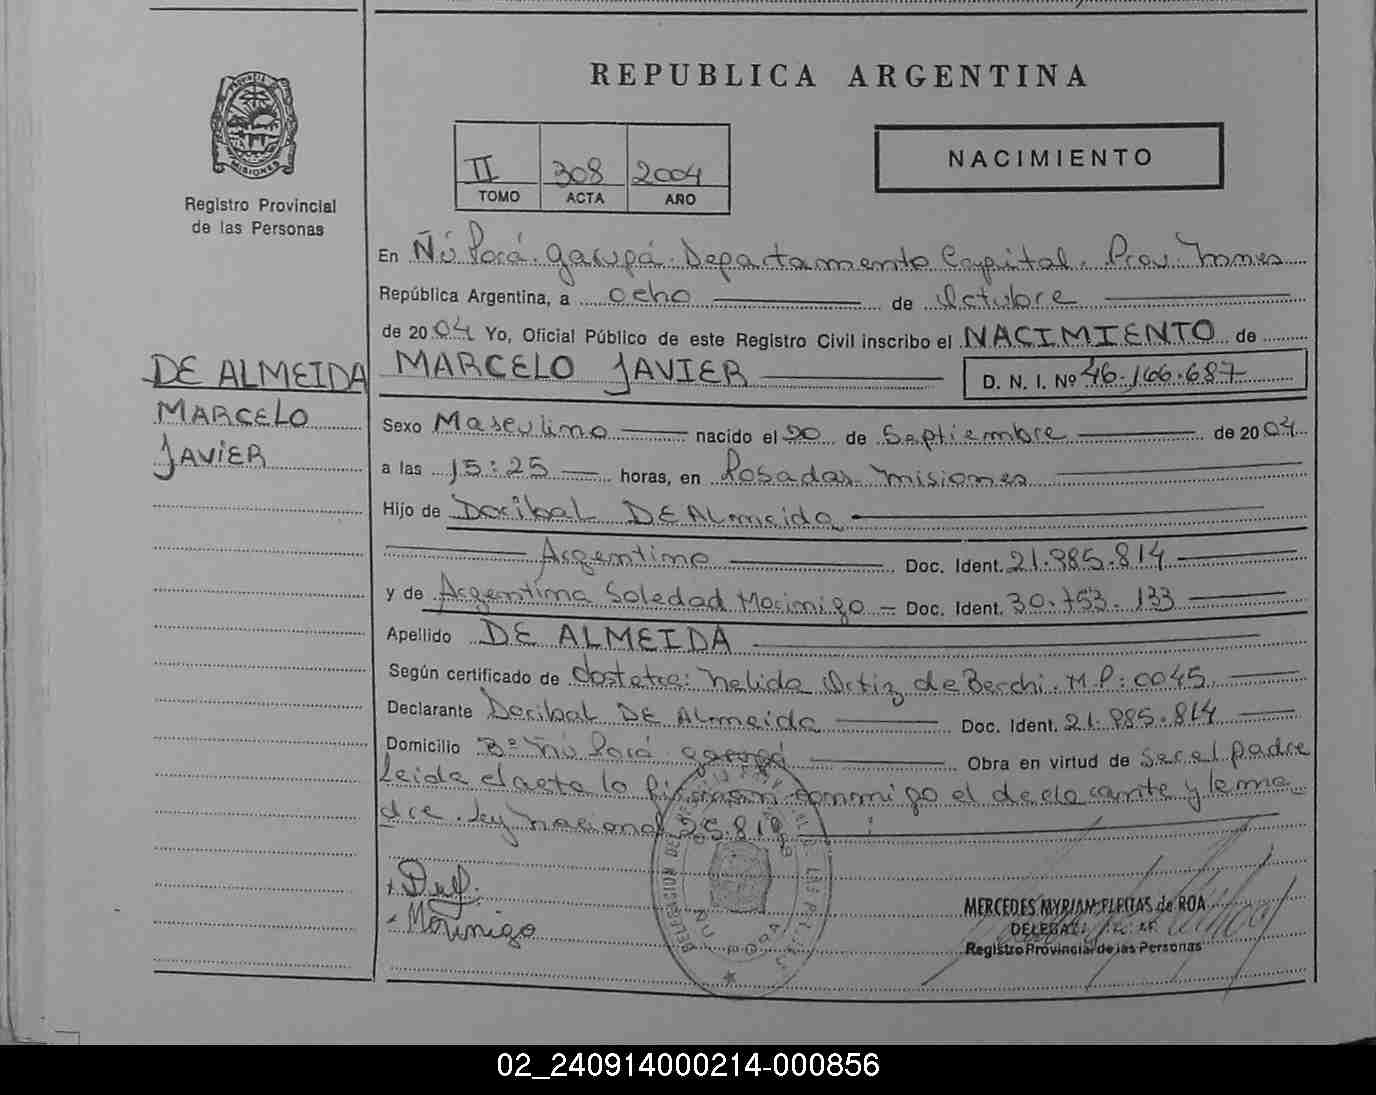 REPUBLICA ARGENTINA
PROVINCIA DE MISIONES
Registro Provincial
de las Personas
II 308 2004
TOMO ACTA AÑO
NACIMIENTO
En Ñú Porá. Garupá. Departamento Capital. Prov. Mnes
República Argentina, a ocho de Octubre
de 2004 Yo, Oficial Público de este Registro Civil inscribo el NACIMIENTO de
MARCELO JAVIER D. N. I. Nº 46.166.687
DE ALMEIDA
MARCELO
JAVIER
Sexo Masculino nacido el 20 de Septiembre de 2004
a las 15:25 horas, en Posadas Misiones
Hijo de Doribal DE Almeida
Argentino Doc. Ident. 21.985.814
y de Argentina Soledad Morinigo - Doc. Ident. 30.753.133
Apellido DE ALMEIDA
Según certificado de Obstetra: Nelida Ortiz de Berchi. M.P: 0045
Declarante Doribal DE Almeida Doc. Ident. 21.985.814
Domicilio Bº Ñú Porá Garupá Obra en virtud de Ser el padre
Leida el acta la firman conmigo el declarante y la ma
dre. Ley Nacional 25.819
Morinigo
DELEGACION ÑU PORA
MERCEDES MYRIAN PLEITAS de ROA
DELEGADA
Registro Provincial de las Personas
02_240914000214-000856